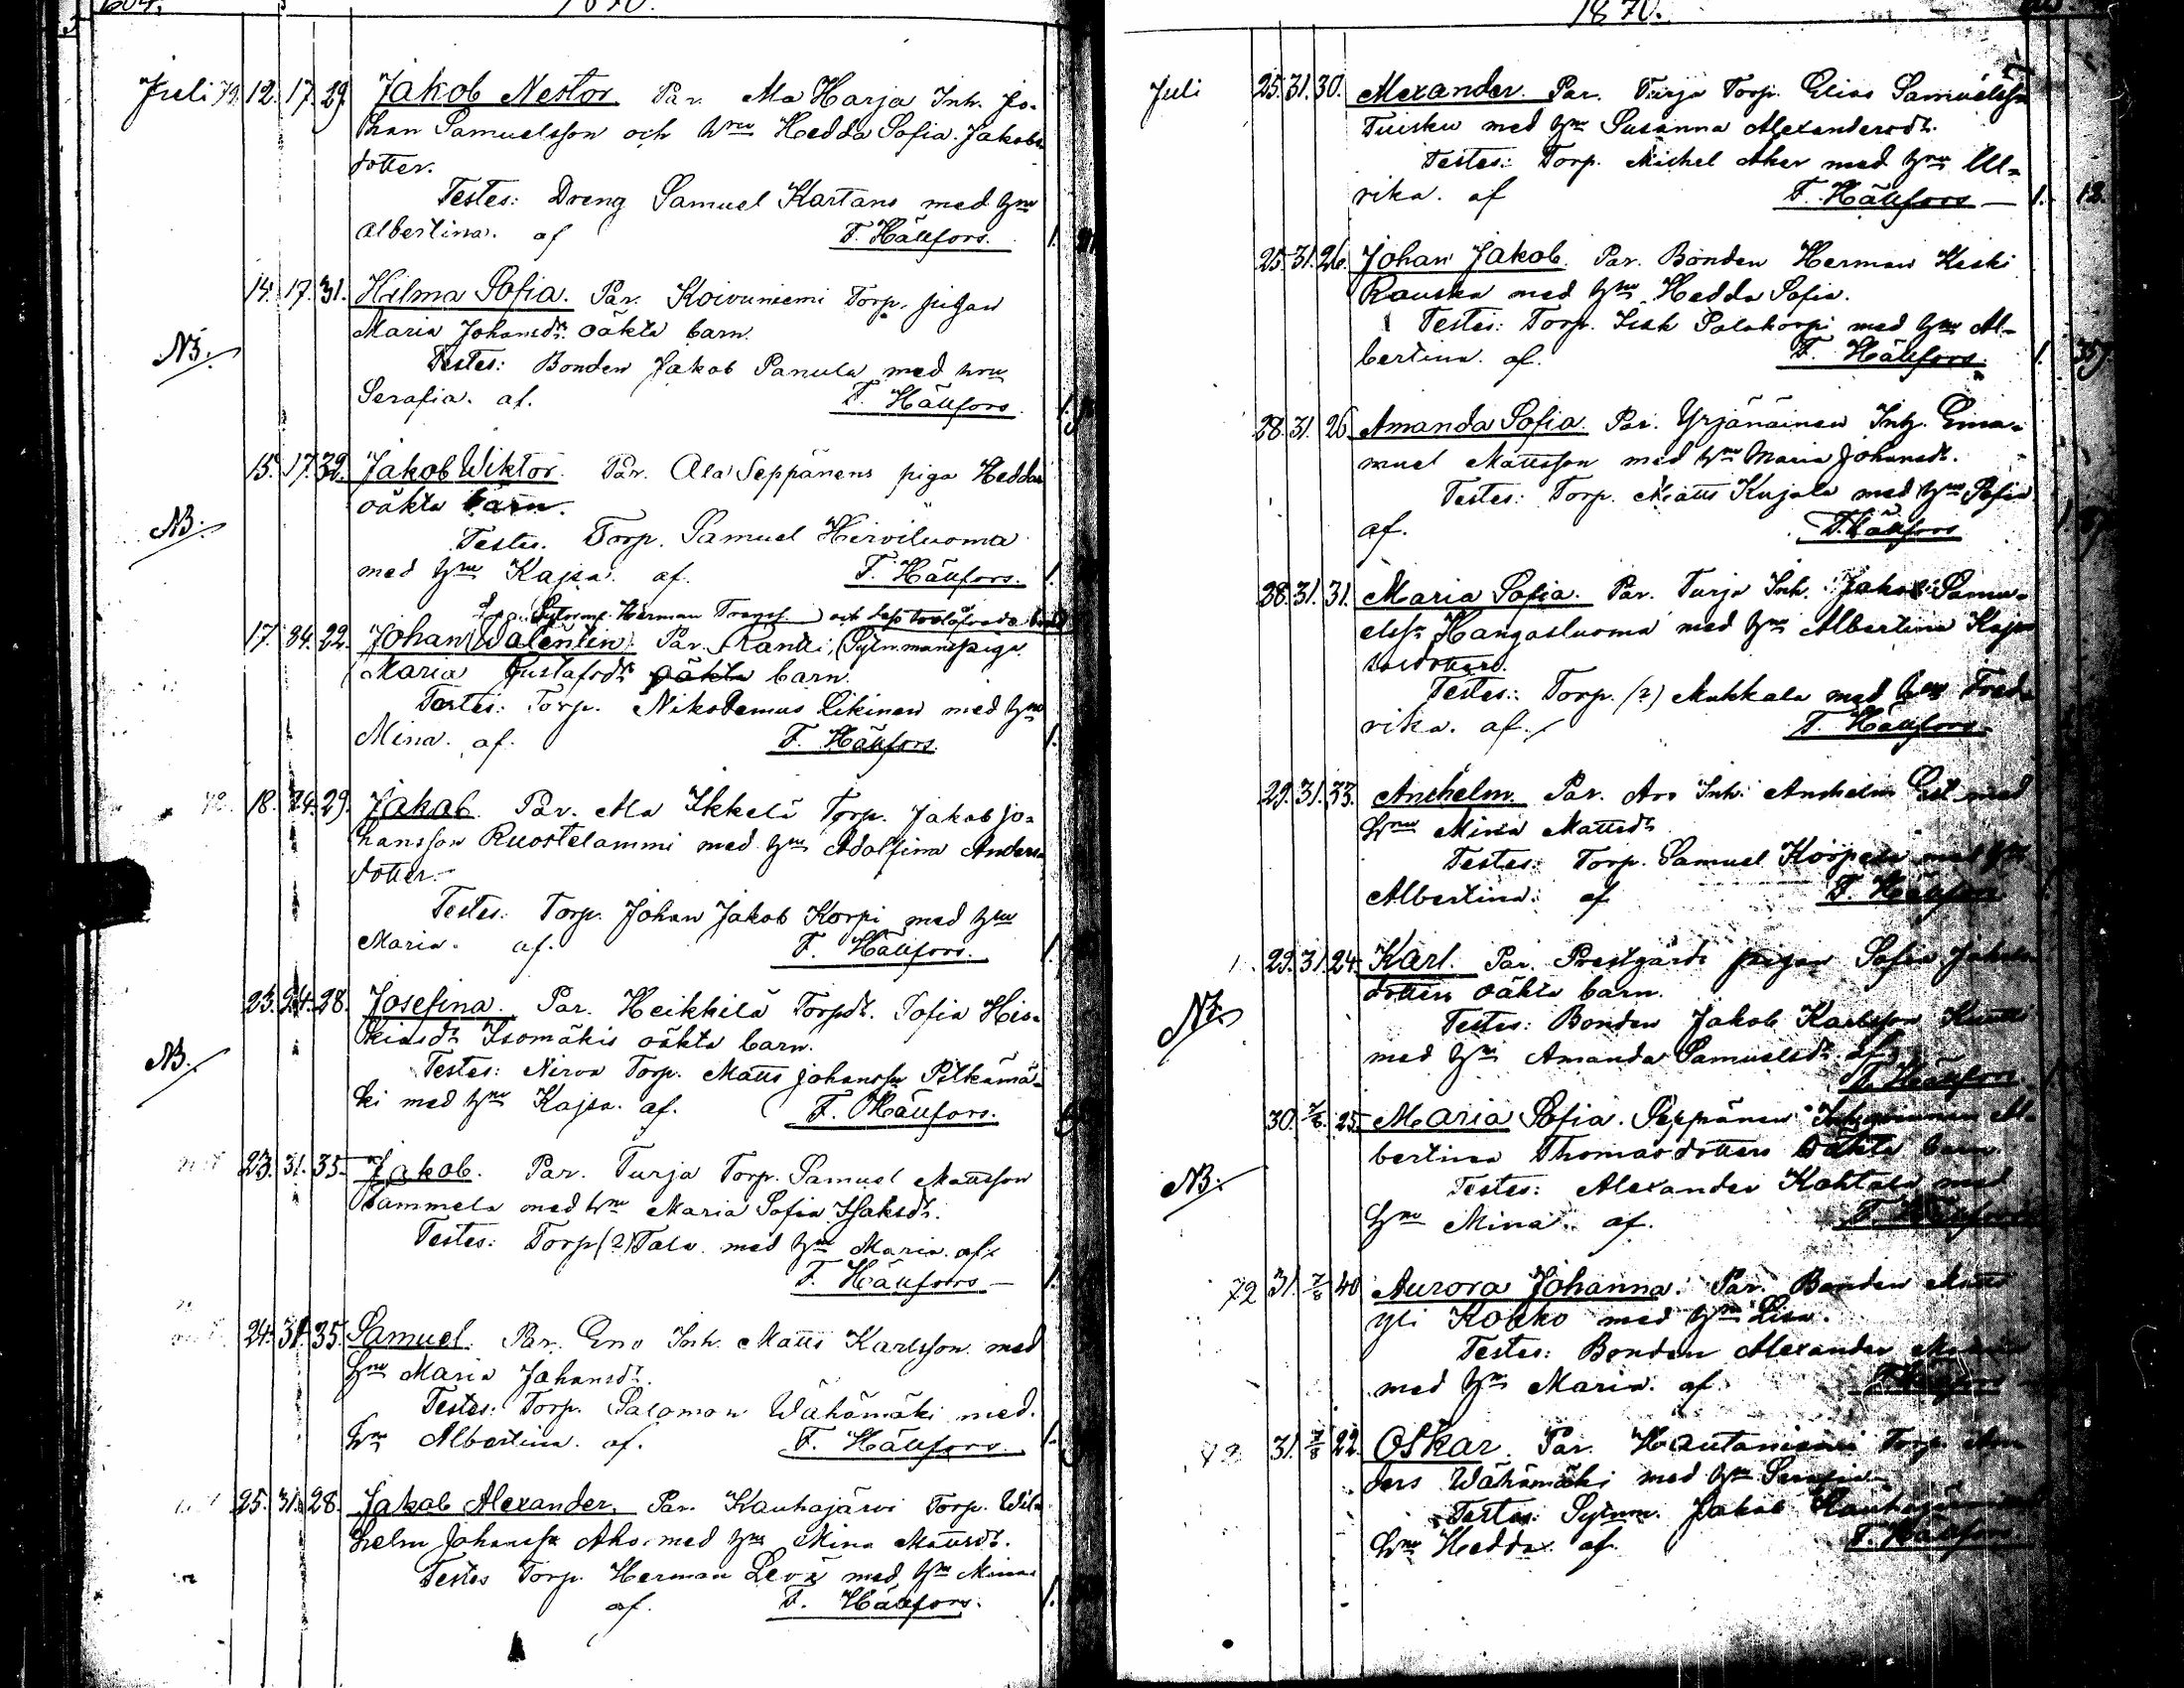 1870.
Juli 72. 12. 17. 29. Jakob Nestor. Par. Ala Harja Inh. Jo-
han Samuelsson och hru Hedda Sofia Jakobs
dotter.
Testes: Dreng Samuel Kartano med hru
Albertina. af F. Hällfors. 1.
14. 17. 31. Hilma Sofia. Par. Koivuniemi Torp. pigan
Maria Johansdr. oäkta barn.
NB. Testes: Bonden Jakob Panula med hru
Serafia. af. F. Hällfors. 1.
15. 17. 32. Jakob Wiktor. Par. Ala Seppänens piga Heddas
oäkta barn.
NB. Testes. Torp. Samuel Hirviluoma
med hru Kajsa. af. F. Hällfors. 1.
Herman och dess trolofvade
17. 24. 22. Johan Walentin. Par. Rantti, (Sytnmans piga
Maria Gustafsdr oäkta barn.
Testes: Torp. Nikodemus Likinen med hru
Mina. af. F. Hällfors. 1.
72. 18. 24. 29. Jakob. Par. Ala Ikkelä Torp. Jakob Jo-
hansson Ruostelammi med hru Adolfina Anders
dotter.
Testes: Torp. Johan Jakob Korpi med hru
Maria. af. F. Hällfors. 1.
23. 24. 28. Josefina. Par. Heikkilä Torpdr. Sofia His-
kiasdr Isomäkis oäkta barn.
NB. Testes: Nirva Torp. Matts Johanssn Pitkämä-
ki med hru Kajsa. af. F. Hällfors.
23. 31. 35. Jakob. Par. Turja Torp. Samuel Mattsson
Sammela med hru Maria Sofia Isaksdr.
Testes: Torp (?) Tala med hru Maria. af.
F. Hällfors 1.
24. 31. 35. Samuel. Par. Eno Inh. Matts Karlsson med
hru Maria Johansdr.
Testes: Torp. Salomon Wähämäki med
hru Albertina. af. F. Hällfors. 1.
25. 31. 28. Jakob Alexander. Par. Kauhajärvi Torp. Wil-
helm Johanssn Aho. med hru Mina Mattsdr.
Testes Torp. Herman Levä med hru Mina
af. F. Hällfors. 1.
1870.
Juli 25. 31. 30. Alexander. Par. Turja Torp. Elias Samuelssn
Tuisku med hru Susanna Alexandersdr.
Testes: Torp. Michel Aker med hru Ul-
rika. af F. Hällfors 1. 12.
25. 31. 26. Johan Jakob. Par. Bonden Herman Keski
Rauska med hru Hedda Sofia.
Testes: Torp. Isak Palokorpi med hru Al-
bertina. af. F. Hällfors. 1. 357.
28. 31. 26. Amanda Sofia. Par. Yrjänäinen Inh. Ema-
nuel Mattsson med hru Maria Johansdr.
Testes: Torp. Matts Kujala med hru Sofia
af. F. Hällfors
28. 31. 31. Maria Sofia. Par. Turja Inh. Jakob Samu-
elssn Hangasluoma med hru Albertina

Testes: Torp. (?) Mukkala med hru Fred-
rika. af. F. Hällfors.
29. 31. 33. Anshelm. Par. Aro Inh. Anshelm med
hru Mina Mattsdr
Testes: Torp. Samuel Korpela med hru
Albertina. af F. Hällfors
29. 31. 24. Karl. Par. Prestgårds pigan Sofia Jakobs
dotters oäkta barn.
NB. Testes: Bonden Jakob Karlsson
med hru Amanda Samuelsdr. af
F. Hällfors
30. 7/8. 25. Maria Sofia. Seppänen Inhqvinnan Al-
bertina Thomasdotters oäkta barn
NB. Testes: Alexander Kohtala med
hru Mina. af. F. Hällfors
72 31. 7/8 40 Aurora Johanna. Par. Bonden Matts
Yli Kokko med hru Lisa.
Testes: Bonden Alexander
med hru Maria. af. F. Hällfors
72 31. 7/8 22. Oskar. Par. Hautaniemi Torp. An-
ders Wähämäki med hru Serafia
Testes: Sytnm. Jakob Kauhajärvi
hru Hedda. af. F. Hällfors